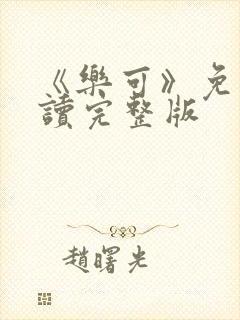 《樂可》免
讀完整版
趙曙光